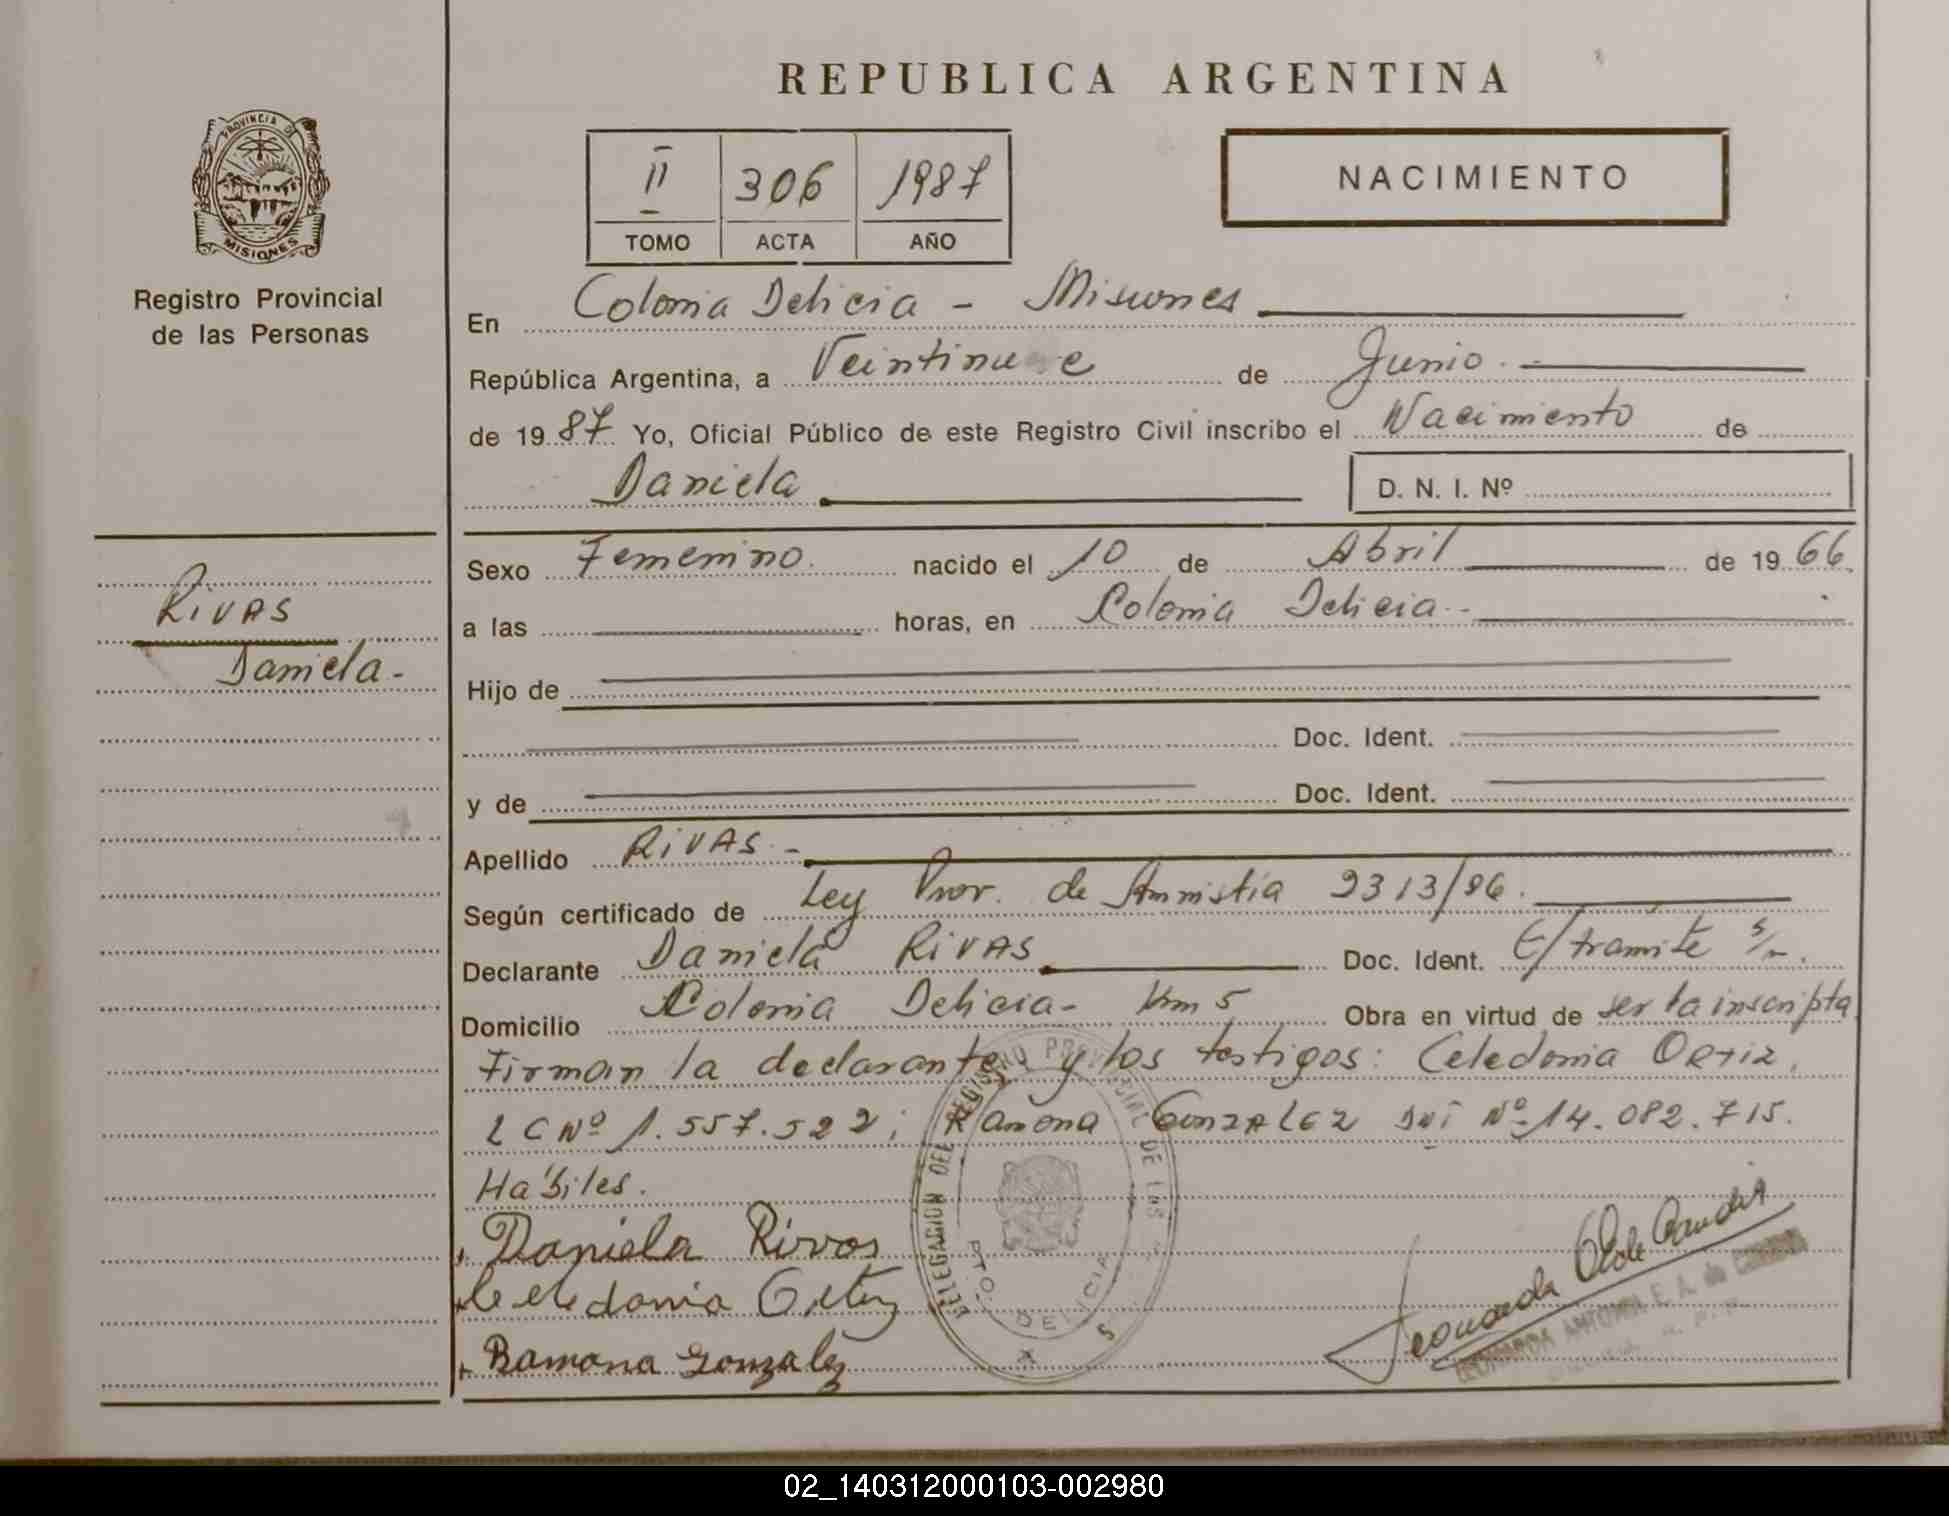 REPUBLICA ARGENTINA
PROVINCIA DE
MISIONES
Registro Provincial
de las Personas
II 306 1987
TOMO ACTA AÑO
NACIMIENTO
En Colonia Delicia - Misiones
República Argentina, a Veintinueve de Junio.
de 1987 Yo, Oficial Público de este Registro Civil inscribo el Nacimiento de
Daniela
D. N. I. Nº
RIVAS
Daniela-
Sexo Femenino. nacido el 10 de Abril de 1966.
a las horas, en Colonia Delicia-
Hijo de
Doc. Ident.
y de Doc. Ident.
Apellido RIVAS.-
Según certificado de Ley Prov. de Amnistía 2313/86.
Declarante Daniela RIVAS Doc. Ident. E/trámite s/n.
Domicilio Colonia Delicia- Km 5 Obra en virtud de ser la inscripta
Firman la declarante y los testigos: Celedonia ORTIZ,
LC Nº 1.557.522; Ramona GONZALEZ DNI Nº 14.082.715.
Hábiles.
Daniela Rivas
Celedonia Ortiz
Ramona Gonzalez
DELEGACION DEL REGISTRO PROVINCIAL DE LAS
PTO. DELICIA
Leonarda
LEONARDA ANTONIA E. A. de
02_140312000103-002980